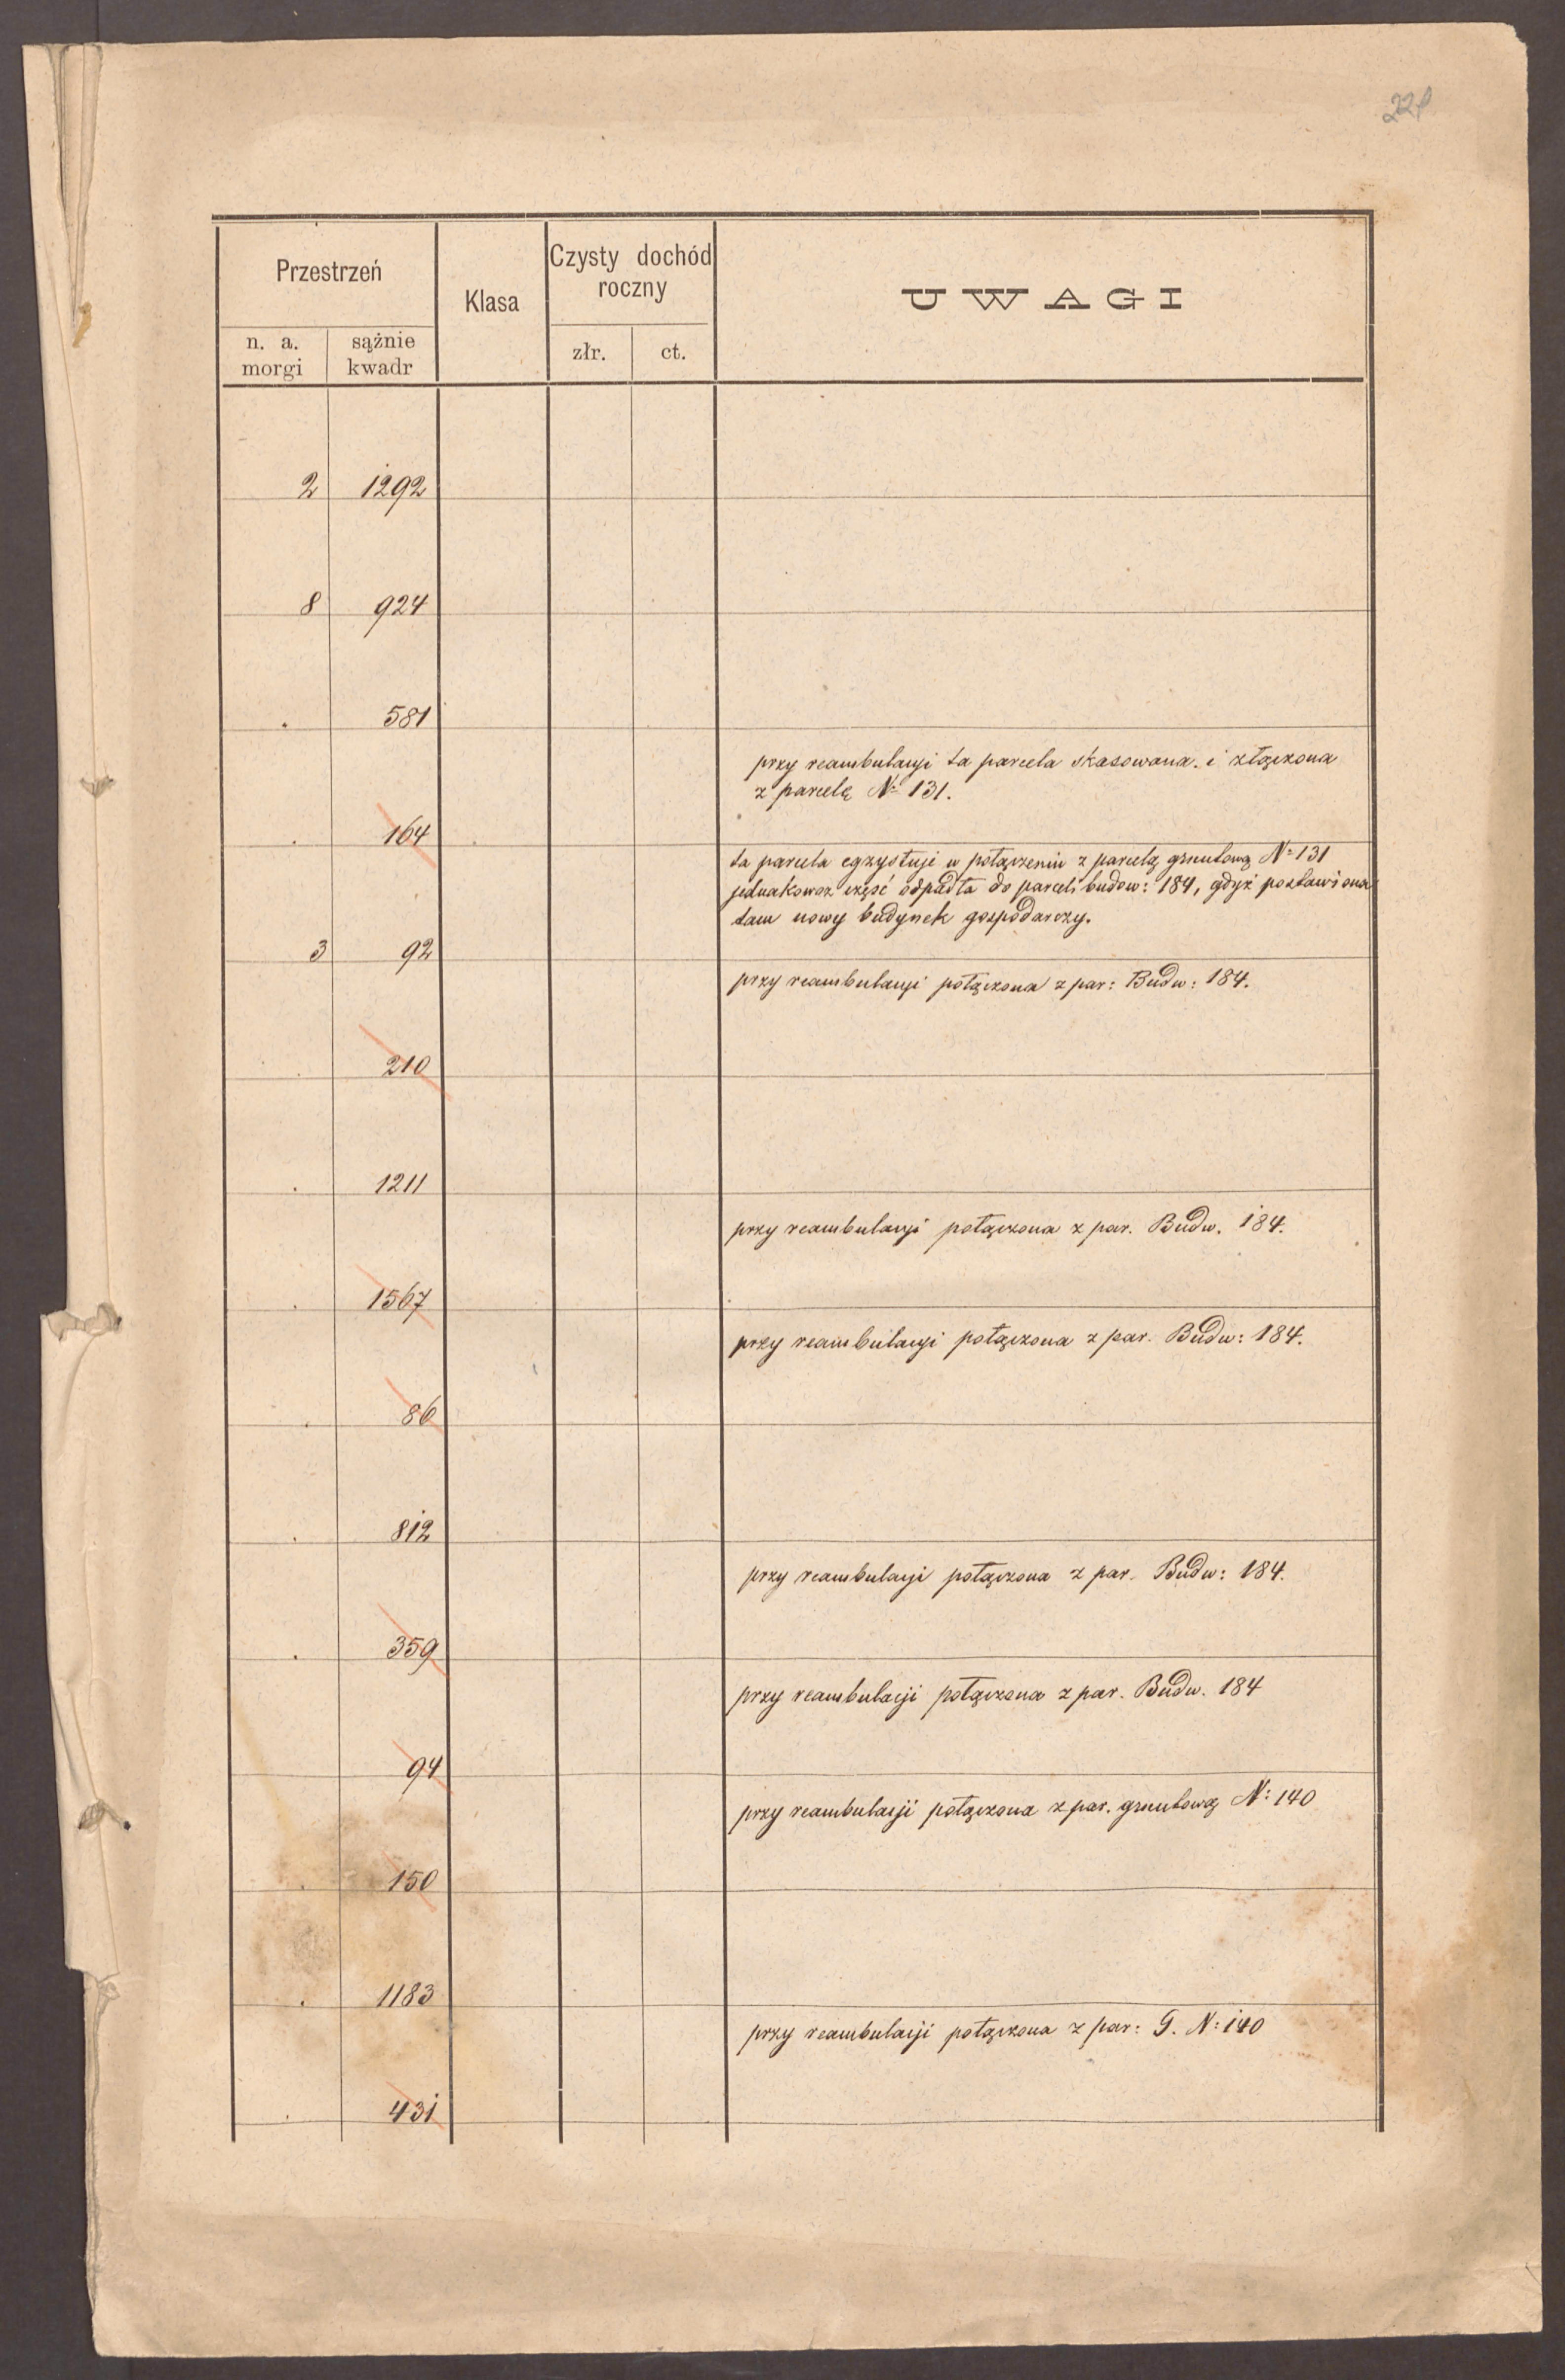 Przestrzeń
Klasa
Czysty dochód
roczny
UWAGI
n. a.
morgi
sążnie
kwadr
złr.
ct.
2 1292
8 924
. 581
przy reambulacyi ta parcela skasowana. i złączona
z parcelą № 131.
. 164
ta parcela egzystuje w połączeniu z parcelą gruntową №131
jednakowoż część odpadła do parceli budow: 184, gdyż postawiona
tam nowy budynek gospodarczy.
3 92
przy reambulacyi połączona z par: Budw: 184.
. 210
. 1211
przy reambulacyi połączona z par. Budw. 184.
. 1567
przy reambulacyi połączona z par. Budw: 184.
. 86
. 812
przy reambulacyi połączona z par. Budw: 184.
. 359
przy reambulacji połączona z par. Budw. 184
94
przy reambulacji połączona z par. gruntową N: 140
. 150
. 1183
przy reambulacji połączona z par: G. N: 140
. 431